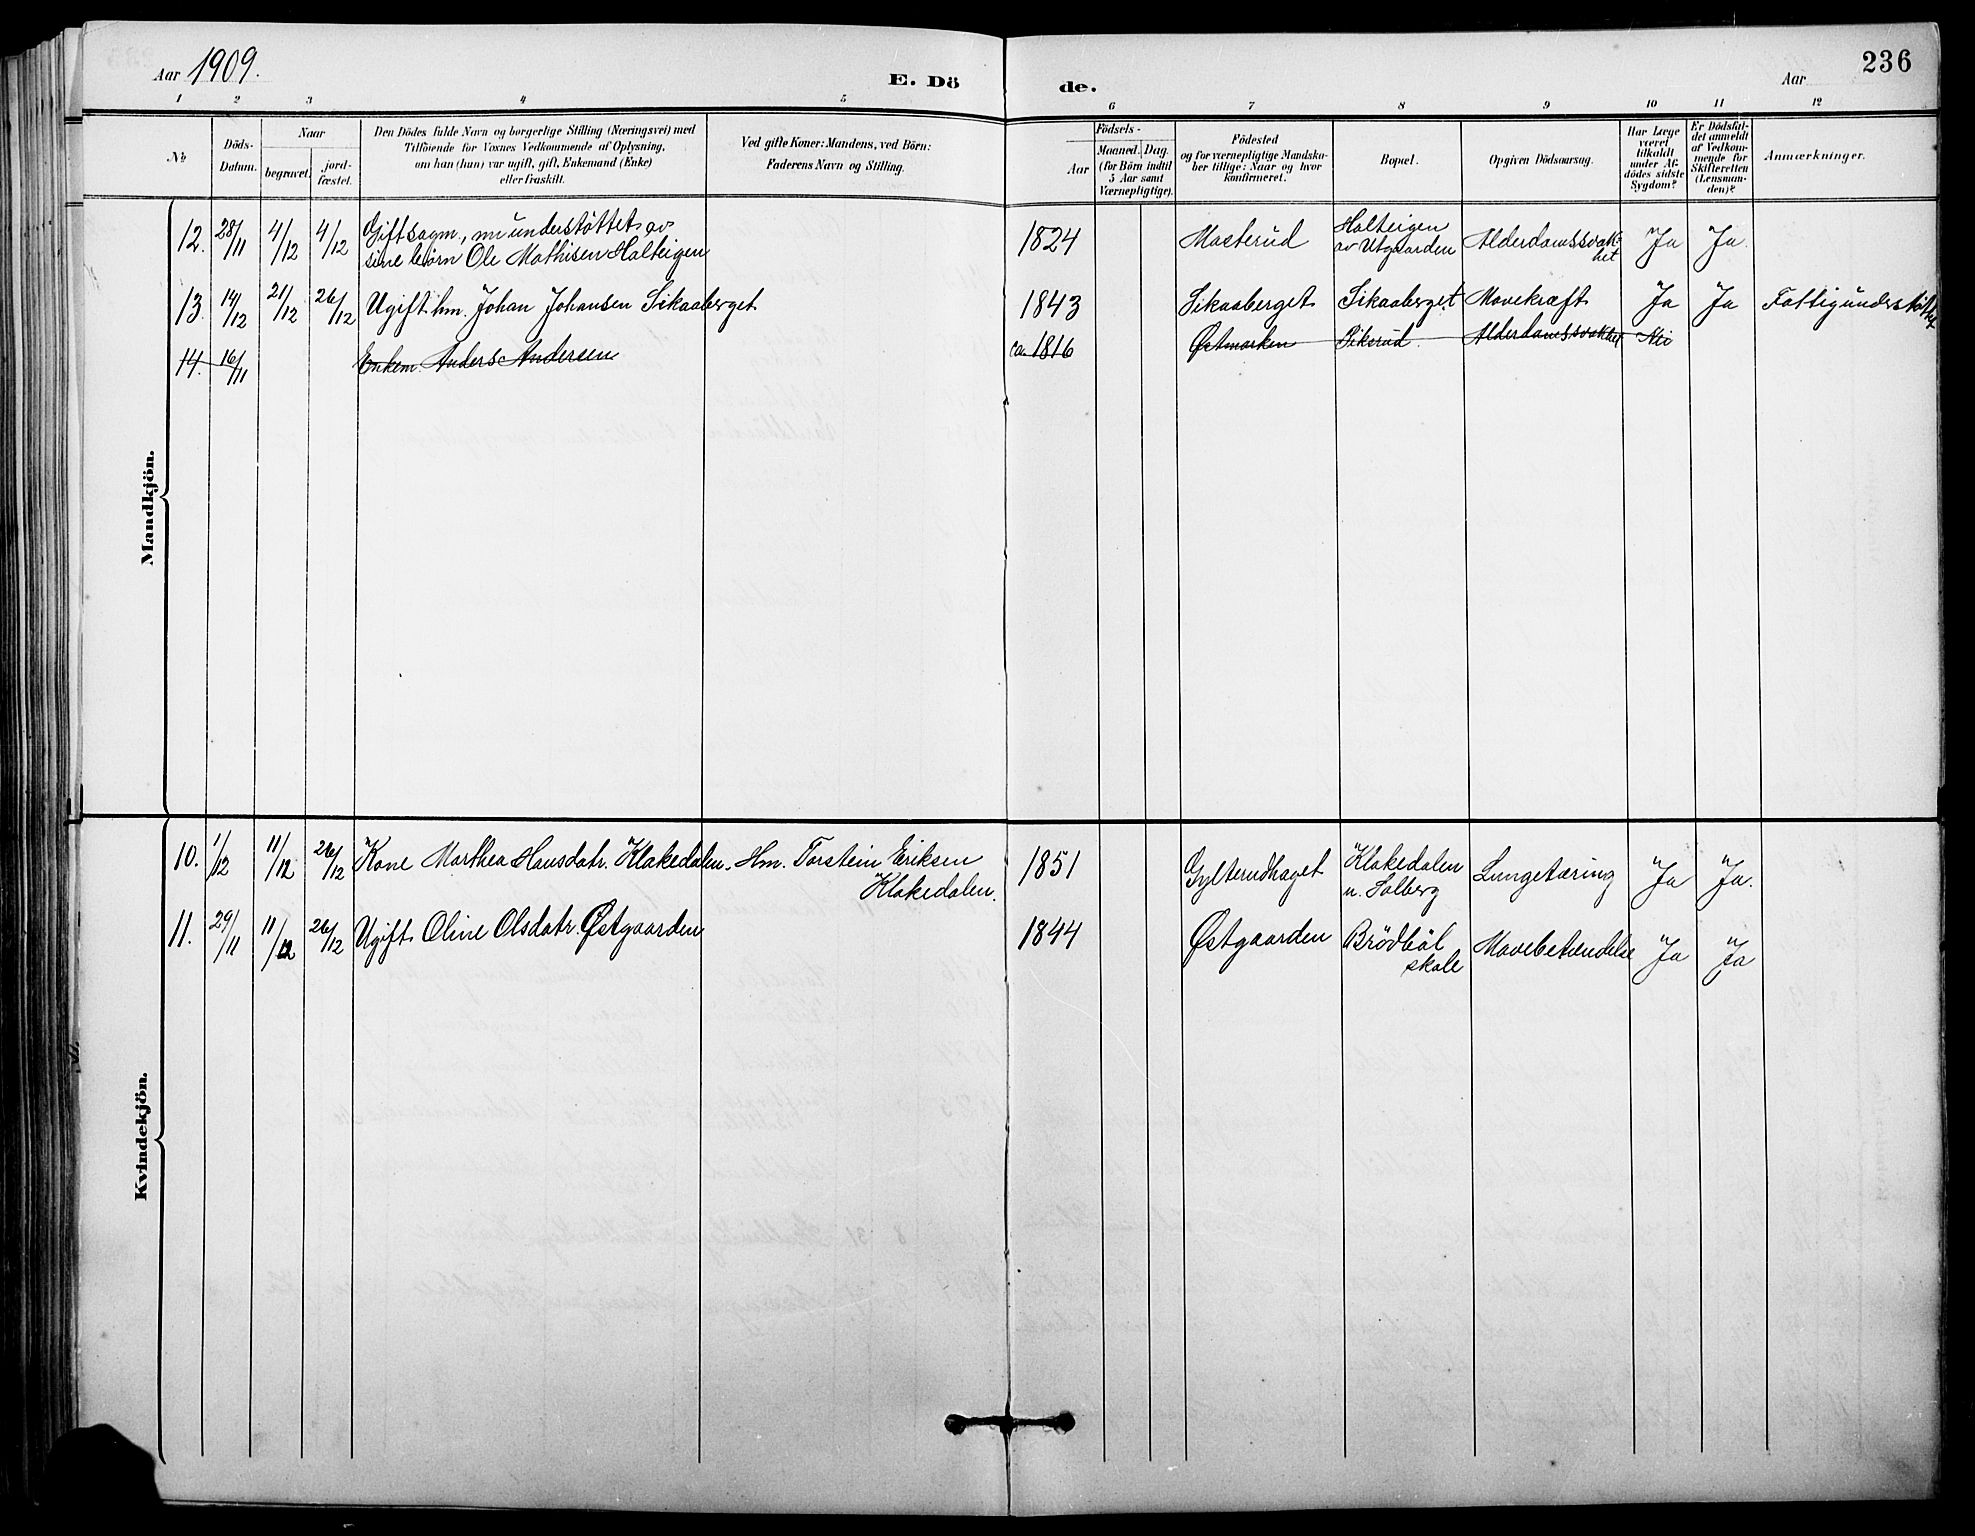 Aar 1909.
E. Dö de.
Aar
236
1 2 3 4 5 6 7 8 9 10 11 12
No
Döds-
Datum.
Naar
begravet.
jord-
fæstet.
Den Dödes fulde Navn og borgerlige Stilling (Næringsvei) med
Tilföiende for Voxnes Vedkommende af Oplysning,
om han (hun) var ugift, gift, Enkemand (Enke)
eller fraskilt.
Ved gifte Koner: Mandens, ved Börn:
Faderens Navn og Stilling.
Födsels-
Aar
Maaned. Dag.
(for Börn indtil
5 Aar samt
Værnepligtige).
Födested
og for værnepligtige Mandska-
ber tillige: Naar og hvor
konfirmeret.
Bopæl.
Opgiven Dödsaarsag.
Har Læge
været
tilkaldt
under Af-
dödes sidste
Sygdom?
Er Dödsfal-
det anmeldt
af Vedkom-
mende for
Skifteretten
(Lensman-
den)?
Anmærkninger.
Mandkjön.
12. 28/11 4/12 4/12 Gift sagm., nu understøttet av
sine børn Ole Mathisen Halteigen
1824 Masterud Halteigen
av Utgaarden Alderdomssvak-
het Ja Ja.
13. 14/12 21/12 26/12 Ugift hm. Johan Johansen Sikaaberget 1843 Sikaaberget Sikaaberget Mavekræft Ja Ja Fattigunderstøttet
14. 16/11 Enkem. Anders Andersen ca. 1816 Østmarken Siksrud. Alderdomssvakhet Nei
Kvindekjön.
10. 1/12 11/12 26/12 Kone Marthea Hansdatr. Klakedalen. Hm. Torstein Eriksen
Klakedalen. 1851 Gylterudhaget Klakedalen
u. Solberg Lungetæring Ja Ja.
11. 29/11 11/12 26/12 Ugift Oline Olsdatr. Østgaarden 1844 Østgaarden Brödböl
skole Mavebetændelse Ja Ja